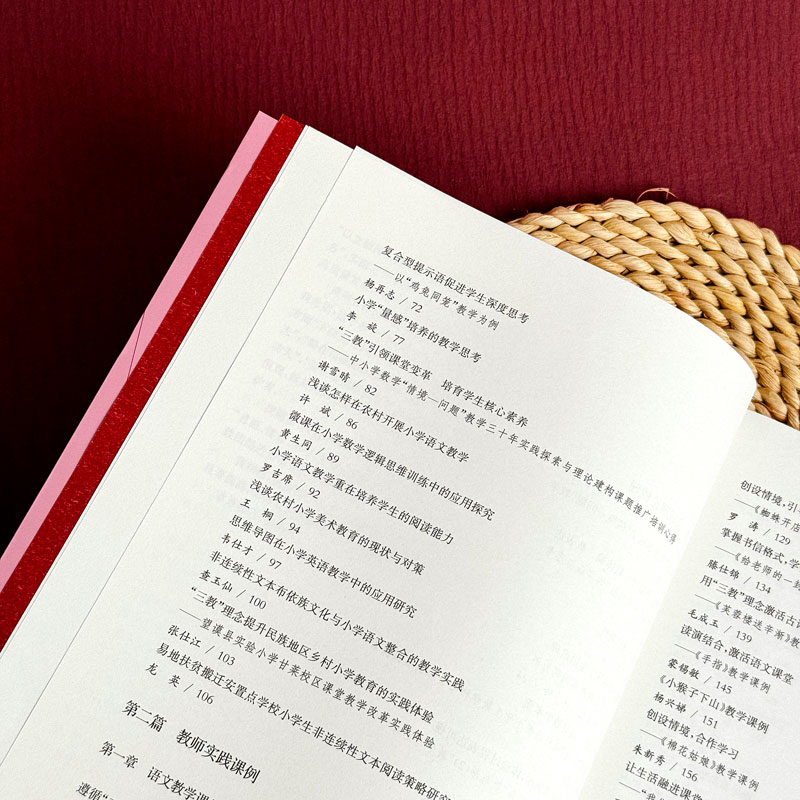 复合型提示语促进学生深度思考
——以“鸡兔同笼”教学为例
杨再志 / 72
小学“量感”培养的教学思考
李 旋 / 77
“三教”引领课堂变革 培育学生核心素养
——中小学数学“情境—问题”教学三十年实践探索与理论建构课题推广培训心得
谢雪晴 / 82
浅谈怎样在农村开展小学语文教学
许 斌 / 86
微课在小学数学逻辑思维训练中的应用探究
黄生同 / 89
小学语文教学重在培养学生的阅读能力
罗吉席 / 92
浅谈农村小学美术教育的现状与对策
王 桐 / 94
思维导图在小学英语教学中的应用研究
韦仕才 / 97
非连续性文本布依族文化与小学语文整合的教学实践
查玉仙 / 100
“三教”理念提升民族地区乡村小学教育的实践体验
——望谟县实验小学甘莱校区课堂教学改革实践体验
张仕江 / 103
易地扶贫搬迁安置点学校小学生非连续性文本阅读策略研究
龙 英 / 106
第二篇 教师实践课例
第一章 语文教学课
遵循“
创设情境,引
——《蜘蛛开店
罗 涛 / 129
掌握书信格式,学
——《给老师的一封
滕仕锦 / 134
用“三教”理念激活古诗
——《芙蓉楼送辛渐》教
毛成玉 / 139
读演结合,激活语文课堂
——《手指》教学课例
蒙锡敏 / 145
《小猴子下山》教学课例
杨兴娣 / 151
创设情境,合作学习
——《棉花姑娘》教学课例
朱新秀 / 156
让生活融进课堂